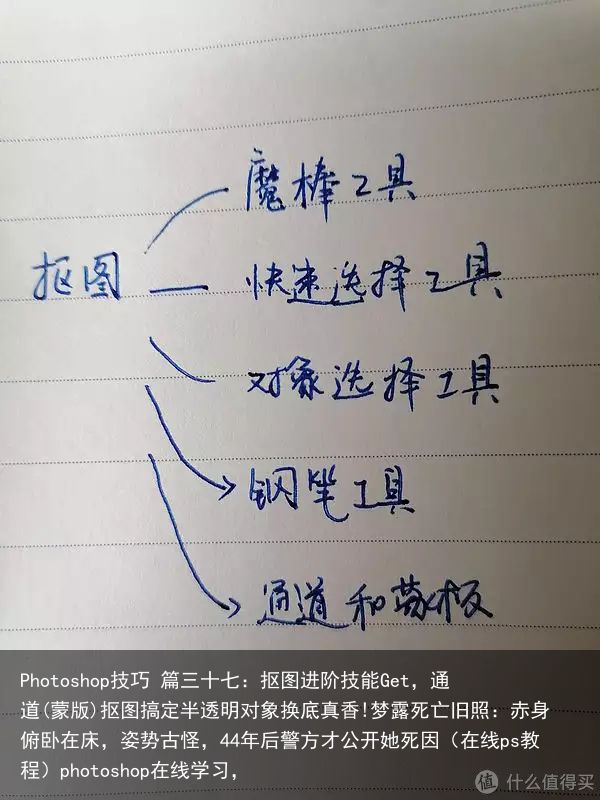 魔棒工具
抠图
快速选择工具
对象选择工具
钢笔工具
通道和蒙板
Photoshop技巧 篇三十七：抠图进阶技能Get，通
道(蒙版)抠图搞定半透明对象换底真香!梦露死亡旧照：赤身
俯卧在床，姿势古怪，44年后警方才公开她死因（在线ps教
程）photoshop在线学习，
值 什么值得买